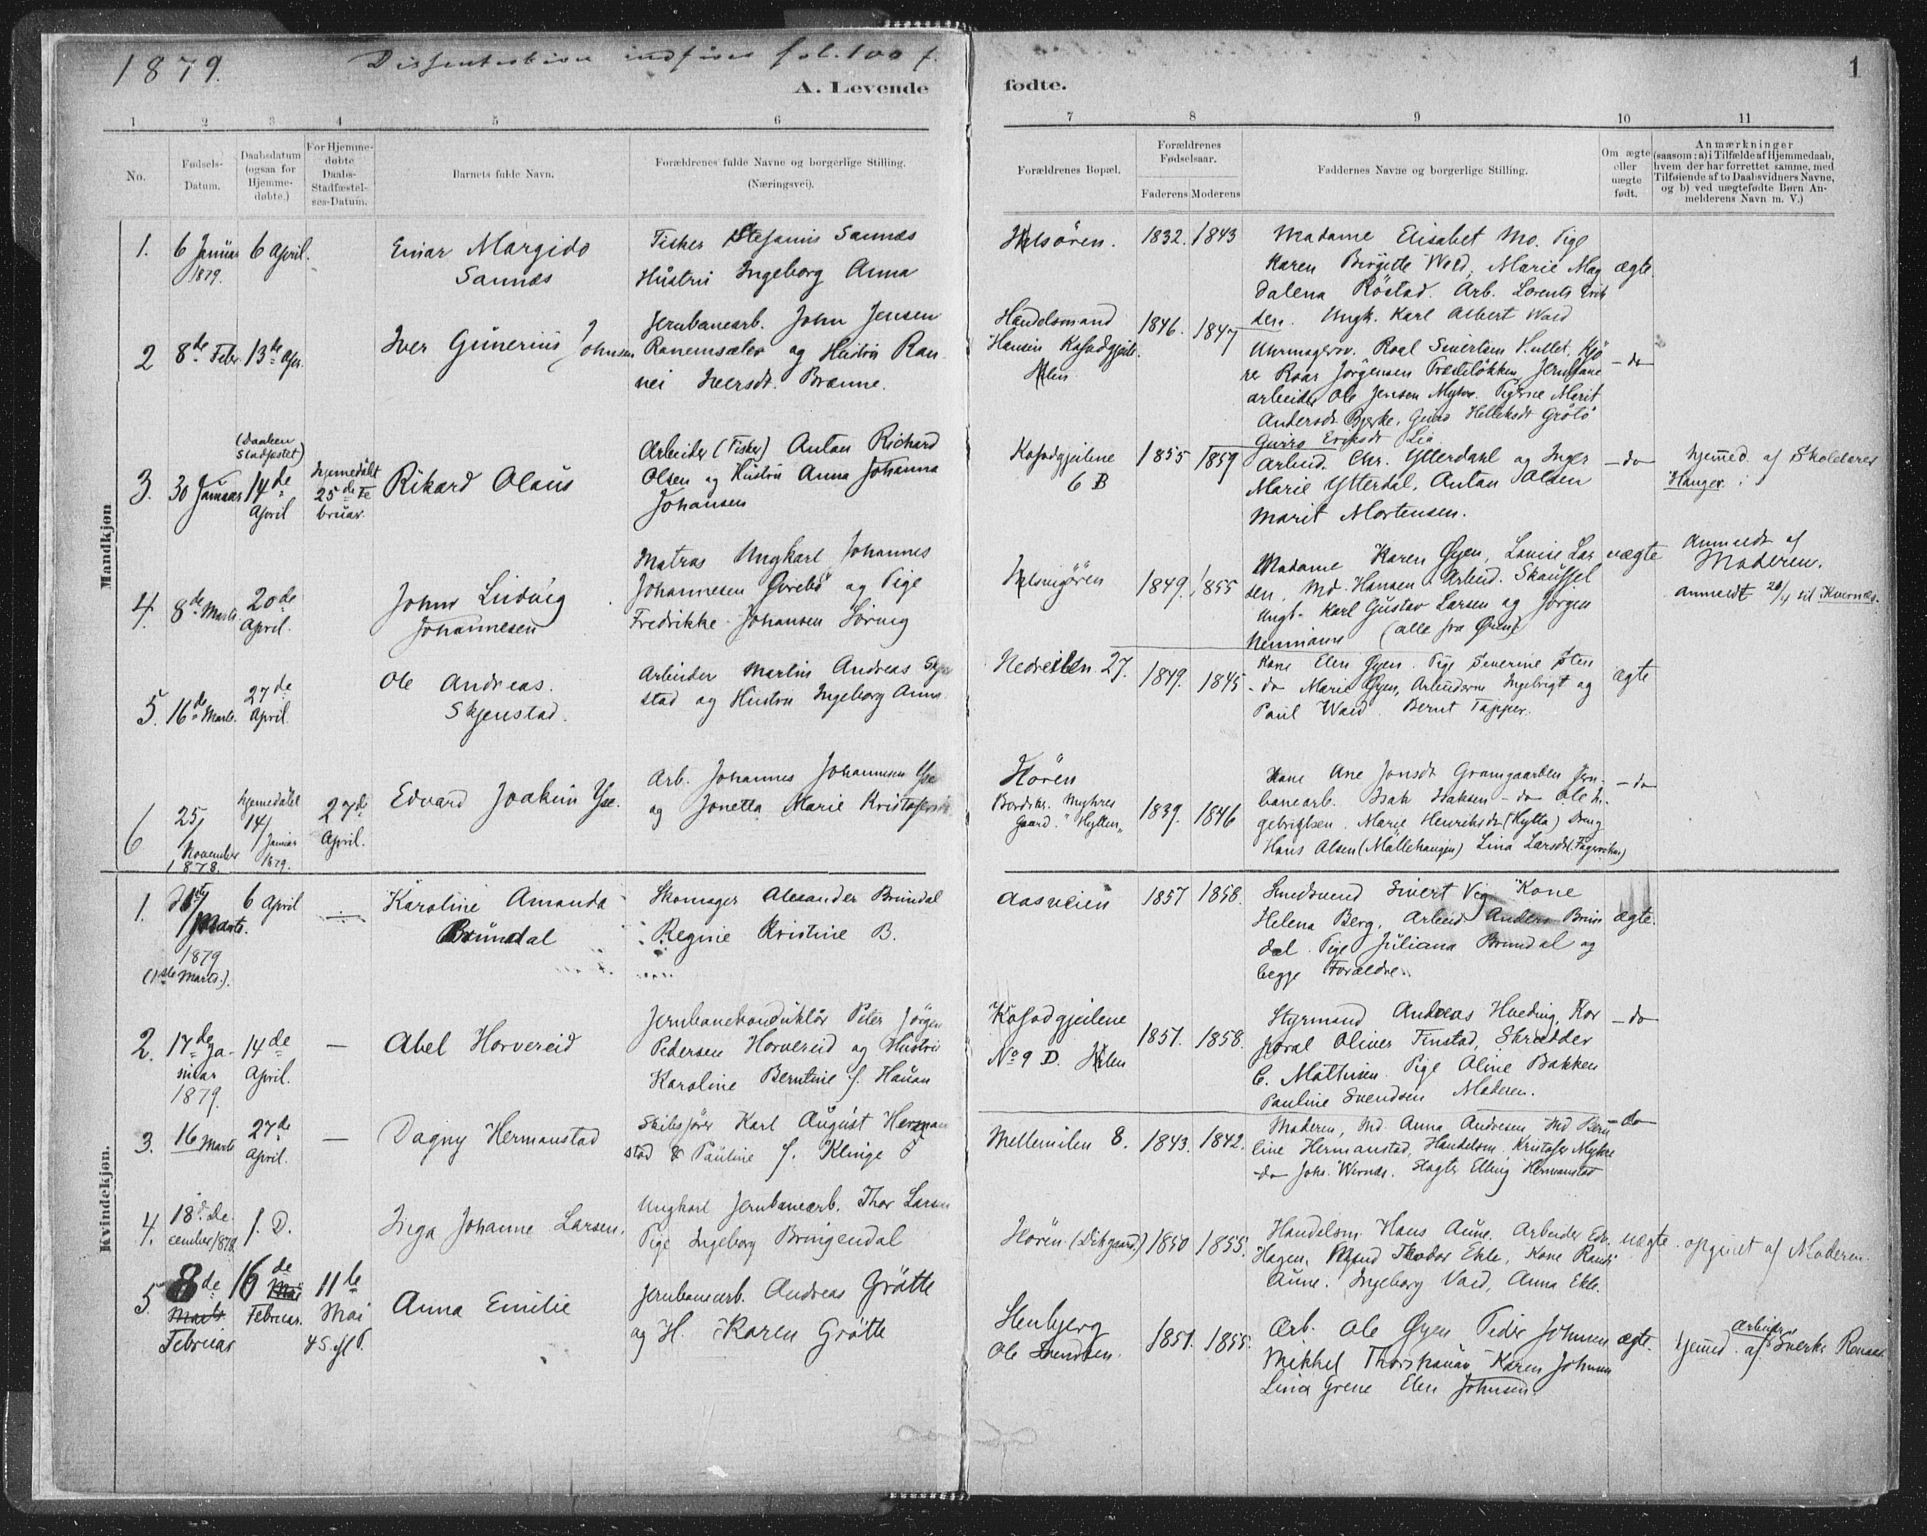 1879.
Dissenterbørn indføres fol. 100 f.
1
A. Levende fødte.
1 2 3 4 5 6 7 8 9 10 11
No.
Fødsels-Datum.
Daabsdatum (ogsaa for Hjemme-døbte.)
For Hjemme-døbte Daabs-Stadfæstel-ses-Datum.
Barnets fulde Navn.
Forældrenes fulde Navne og borgerlige Stilling. (Næringsvei).
Forældrenes Bopæl.
Forældrenes Fødselsaar.
Faderens Moderens
Faddernes Navne og borgerlige Stilling.
Om ægte eller uægte født.
Anmærkninger
(saasom: a) i Tilfælde af Hjemmedaab, hvem der har forrettet samme, med Tilføiende af to Daabsvidners Navne, og b) ved uægtefødte Børn Anmelderens Navn m. V.)
Mandkjøn
1. 6 Januar 1879. 6 April.
Einar Margido
Sannæs
Fisker Stefanus Sannæs
Hustru Ingeborg Anna
1832. 1843
Madame Elisabet Mo. Pige
Karen Birgitte Wold, Marie Mag
dalena Röstad. Arb. Lorents
Ungk. Karl Albert Wold
ægte.
2 8de Febr 13te Apr.
Iver Gunerius Johnsen
Jernbanearb. John Jensen
Ranemsæter og Hustru Ran
nei Iversdt. Brænne.
Handelsmand
Hansen
1846. 1847
Uhrmagersv. Roal Sivertsen Hullet,
re Roar Jörgensen Jernbane
arbeider Ole Jensen Myhre. Pigerne Marit
Andersdt Bjerke, Guro Grötö
Guro Eriksdt Lia
- do
3. 30 Januar
(Daaben Stadfæstet)
14de April
hjemmedöbt 25de Februar
Rikard Olaus
Arbeider (Fisker) Anton Richard
Olsen og Hustru Anna Johanna
Johansen
6 B
1855 1859
Arbeid. Chr. Ytterdahl og Inger
Marie Ytterdal, Anton Olsen
Marit Mortensen.
- do
hjemmed. af Skolelærer
Hanger.
4. 8de Marts 20de April.
John Ludvig
Johannesen
Matros Ungkarl Johannes
Johannesen Øvrebö og Pige
Fredrikke Johansen
1849. 1855
Madame Karen Øyen, Lovise Lar
sen, Md. Hansen, Arbeid.
Ungk. Karl Gustav Larsen og Jörgen
Neumann (alle fra Ören)
uægte
Anmeldt af
Moderen.
anmeldt 28/4 til Kvernæs.
5. 16de Marts. 27de April.
Ole Andreas.
Skjenstad.
Arbeider Martin Andreas Skjen
stad og Hustru Ingeborg Anna
27.
1849. 1845
Kone Elen Øyen. Pige Severine Sten
- do Marie Øyen, Arbeiderne Ingebrigt og
Paul Wold. Bernt Tapper.
ægte
6 25/November 1878.
hjemmedöbt 14/Januar 1879.
27de April.
Edvard Joakim Yse.
Arb. Johannes Johannesen Yse
og Jonetta Marie Kristofersdt
Hören
Gaard. "Hytten"
1839. 1846
Kone Ane Jonsdt Gramgaarden Jern-
banearb. Isak Isaksen - do Ole In-
gebrigtsen. Marie Henriksdt (Hytta) Dreng
Hans Olsen (Möllehaugen) Lina Larsdt.
- do
Kvindekjøn.
1. 1ste Marts. 1879 (1ste Marts.) 6 April
Karoline Amanda
Brundal
Skomager Alexander Brundal
Regine Kristine B.
Aasveien
1857 1858.
Smedsvend Sivert Vig Kone
Helena Berg, Arbeid Anders Brun
dal. Pige Juliana Brundal og
begge Forældre.
ægte.
2. 17de Januar 1879. 14de April.
Abel Horvereid
Jernbanekonduktör Peter Jörgen
Pedersen Horvereid og Hustru
Karoline Berntine f. Hauan
No 9 D.
1857. 1858.
Styrmand Andreas Hveding, Kor
poral Oliver Finstad, Skrædder
C. Mathisen. Pige Oline Bakken
Pauline Svendsen Moderen.
- do
3. 16 Marts 27de April.
Dagny Hermanstad
Skibsförer Karl August Herman
stad & Pauline f. Klinge
Mellemilen 8.
1843. 1842.
Moderen, Md. Anna Andresen, Md Bern
tine Hermanstad, Handelsm. Kristofer Myhre
- do Joh. Wernes. Slagter Elling Hermanstad
- do
4. 18de December 1878. s. D.
Inga Johanne Larsen.
Ungkarl Jernbanearb. Thor Larsen
Pige Ingeborg Bringendal
1850 1855.
Handelsm. Hans Aune. Arbeider Edv.
Hagen, Teodor Ekle, Kone Randi
Aune. Ingeborg Vold, Anna Ekle.
uægte
opgivet af Moderen
5. 8de Marts Februar 16de Mai Februar. 11te Mai
Anna Emilie
Jernbanearb. Andreas Grötte
og H. Karen Grötte
Stenbjerg
Ole
1851. 1855.
Arb. Ole Øyen Peder Johnsen
Mikkel Karen Johnsen
Lina Grene Elen Johnsen
ægte.
hjemmed. af Arbeider Sverke